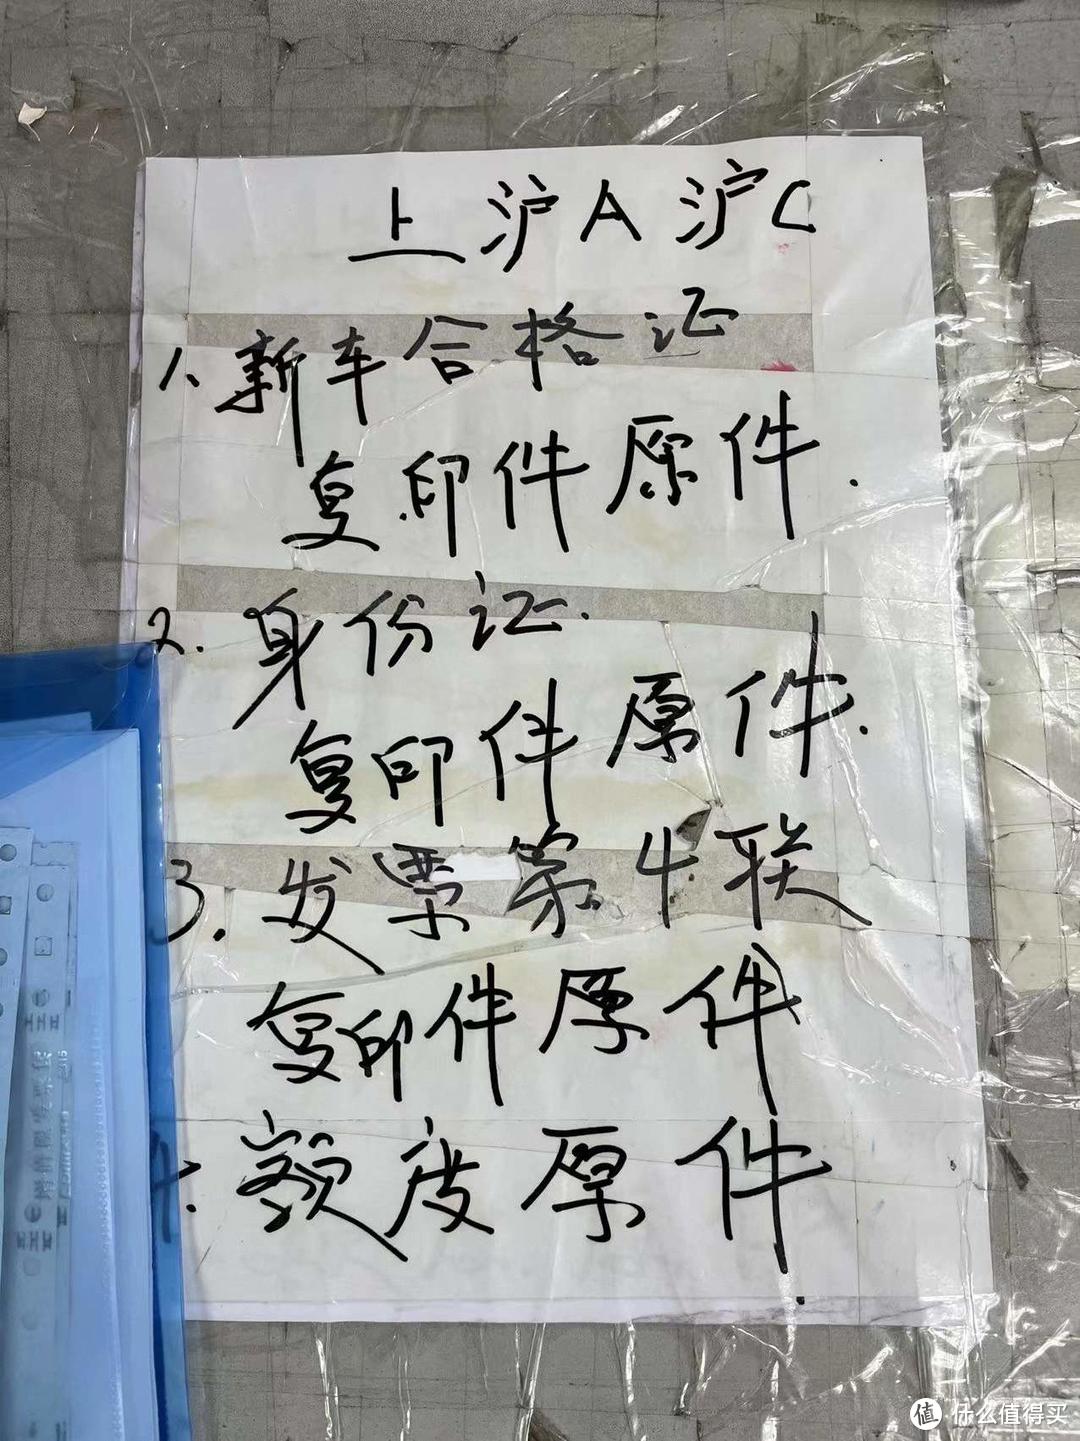 上沪A沪C
1、新车合格证
复印件原件.
2.身份证.
复印件原件.
3.发票第4联
复印件原件
4.额度原件
值 什么值得买